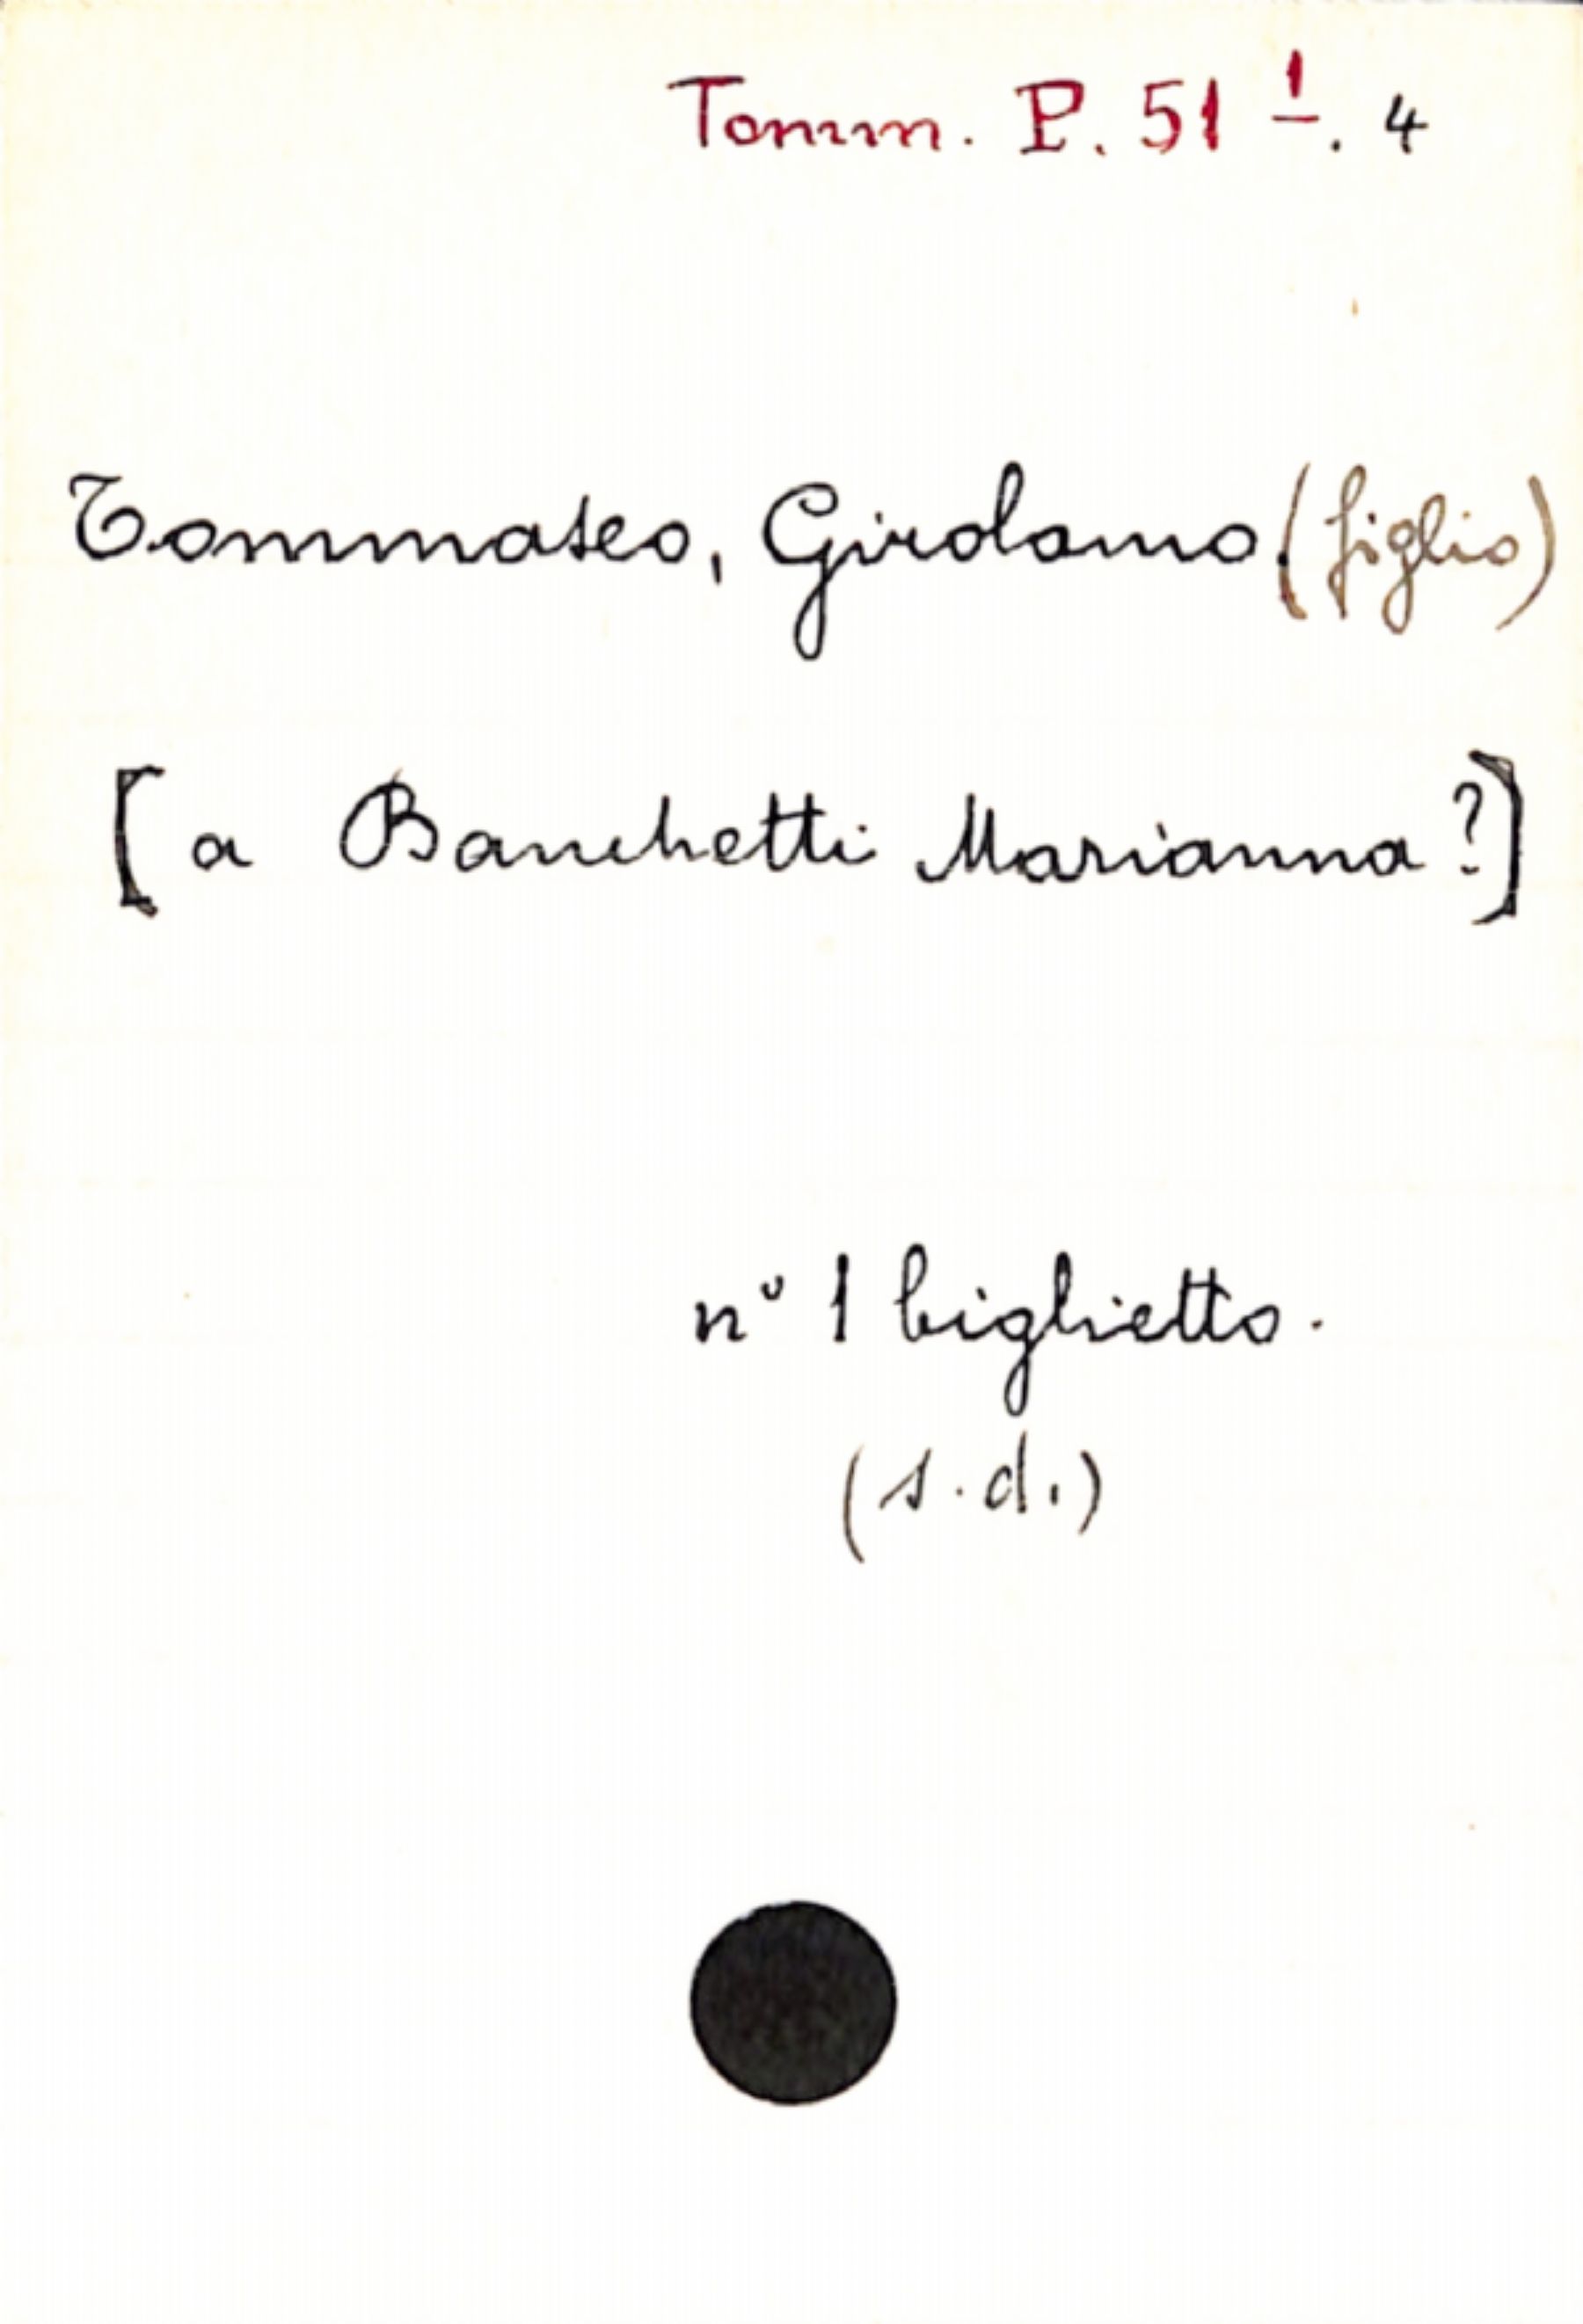 Tomm. P. 51 1. 4
Tommaseo, Girolamo (figlio)
[a Banchetti Marianna?]
nº 1 biglietto.
(s.d.)